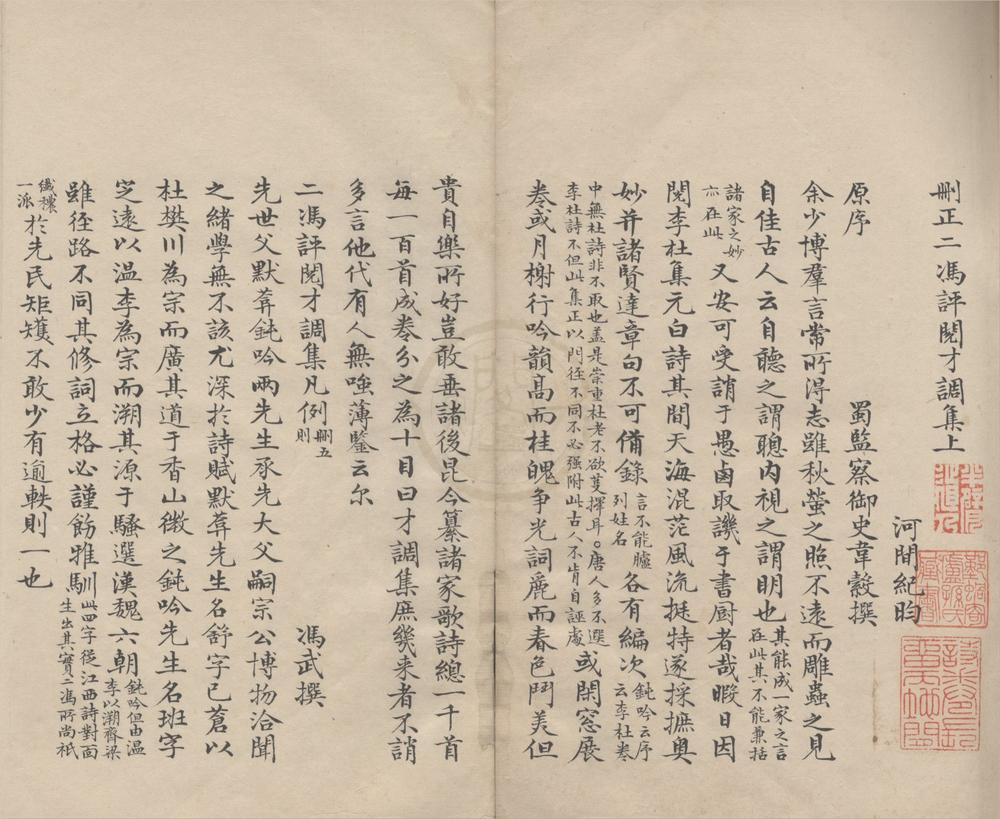 刪正二馮評閱才調集上
河間紀昀
原序 蜀監察御史韋縠撰
余少博羣言常所得志雖秋螢之照不遠而雕蟲之見
自佳古人云自聽之謂聰內視之謂明也其能成一家之言在此其不能兼括
諸家之妙亦在此又安可受誚于愚鹵取譏于書厨者哉暇日因
閱李杜集元白詩其間天海混茫風流挺特遂採摭奧
妙并諸賢達章句不可備錄言不能臚列姓名各有編次鈍吟云序云李杜卷
中無杜詩非不取也盖是崇重杜老不欲芟擇耳。唐人多不選李杜詩不但此集正以門徑不同不必强附此古人不肯自誣處或閑窓展
卷或月榭行吟韻高而桂魄争光詞麗而春色鬥美但
貴自樂所好豈敢垂諸後昆今纂諸家歌詩總一千首
每一百首成卷分之為十目曰才調集庶幾来者不誚
多言他代有人無嗤薄鑒云尔
二馮評閱才調集凡例刪五則 馮武撰
先世父默菴鈍吟兩先生承先大父嗣宗公博物洽聞
之緒學無不該尤深於詩賦默菴先生名舒字已蒼以
杜樊川為宗而廣其道于香山微之鈍吟先生名班字
定遠以温李為宗而溯其源于騷選漢魏六朝鈍吟但由温李以溯齊梁
雖徑路不同其修詞立格必謹飭雅馴此四字從江西詩對面生出其實二馮所尚祇
纖穠一派於先民矩矱不敢少有逾軼則一也